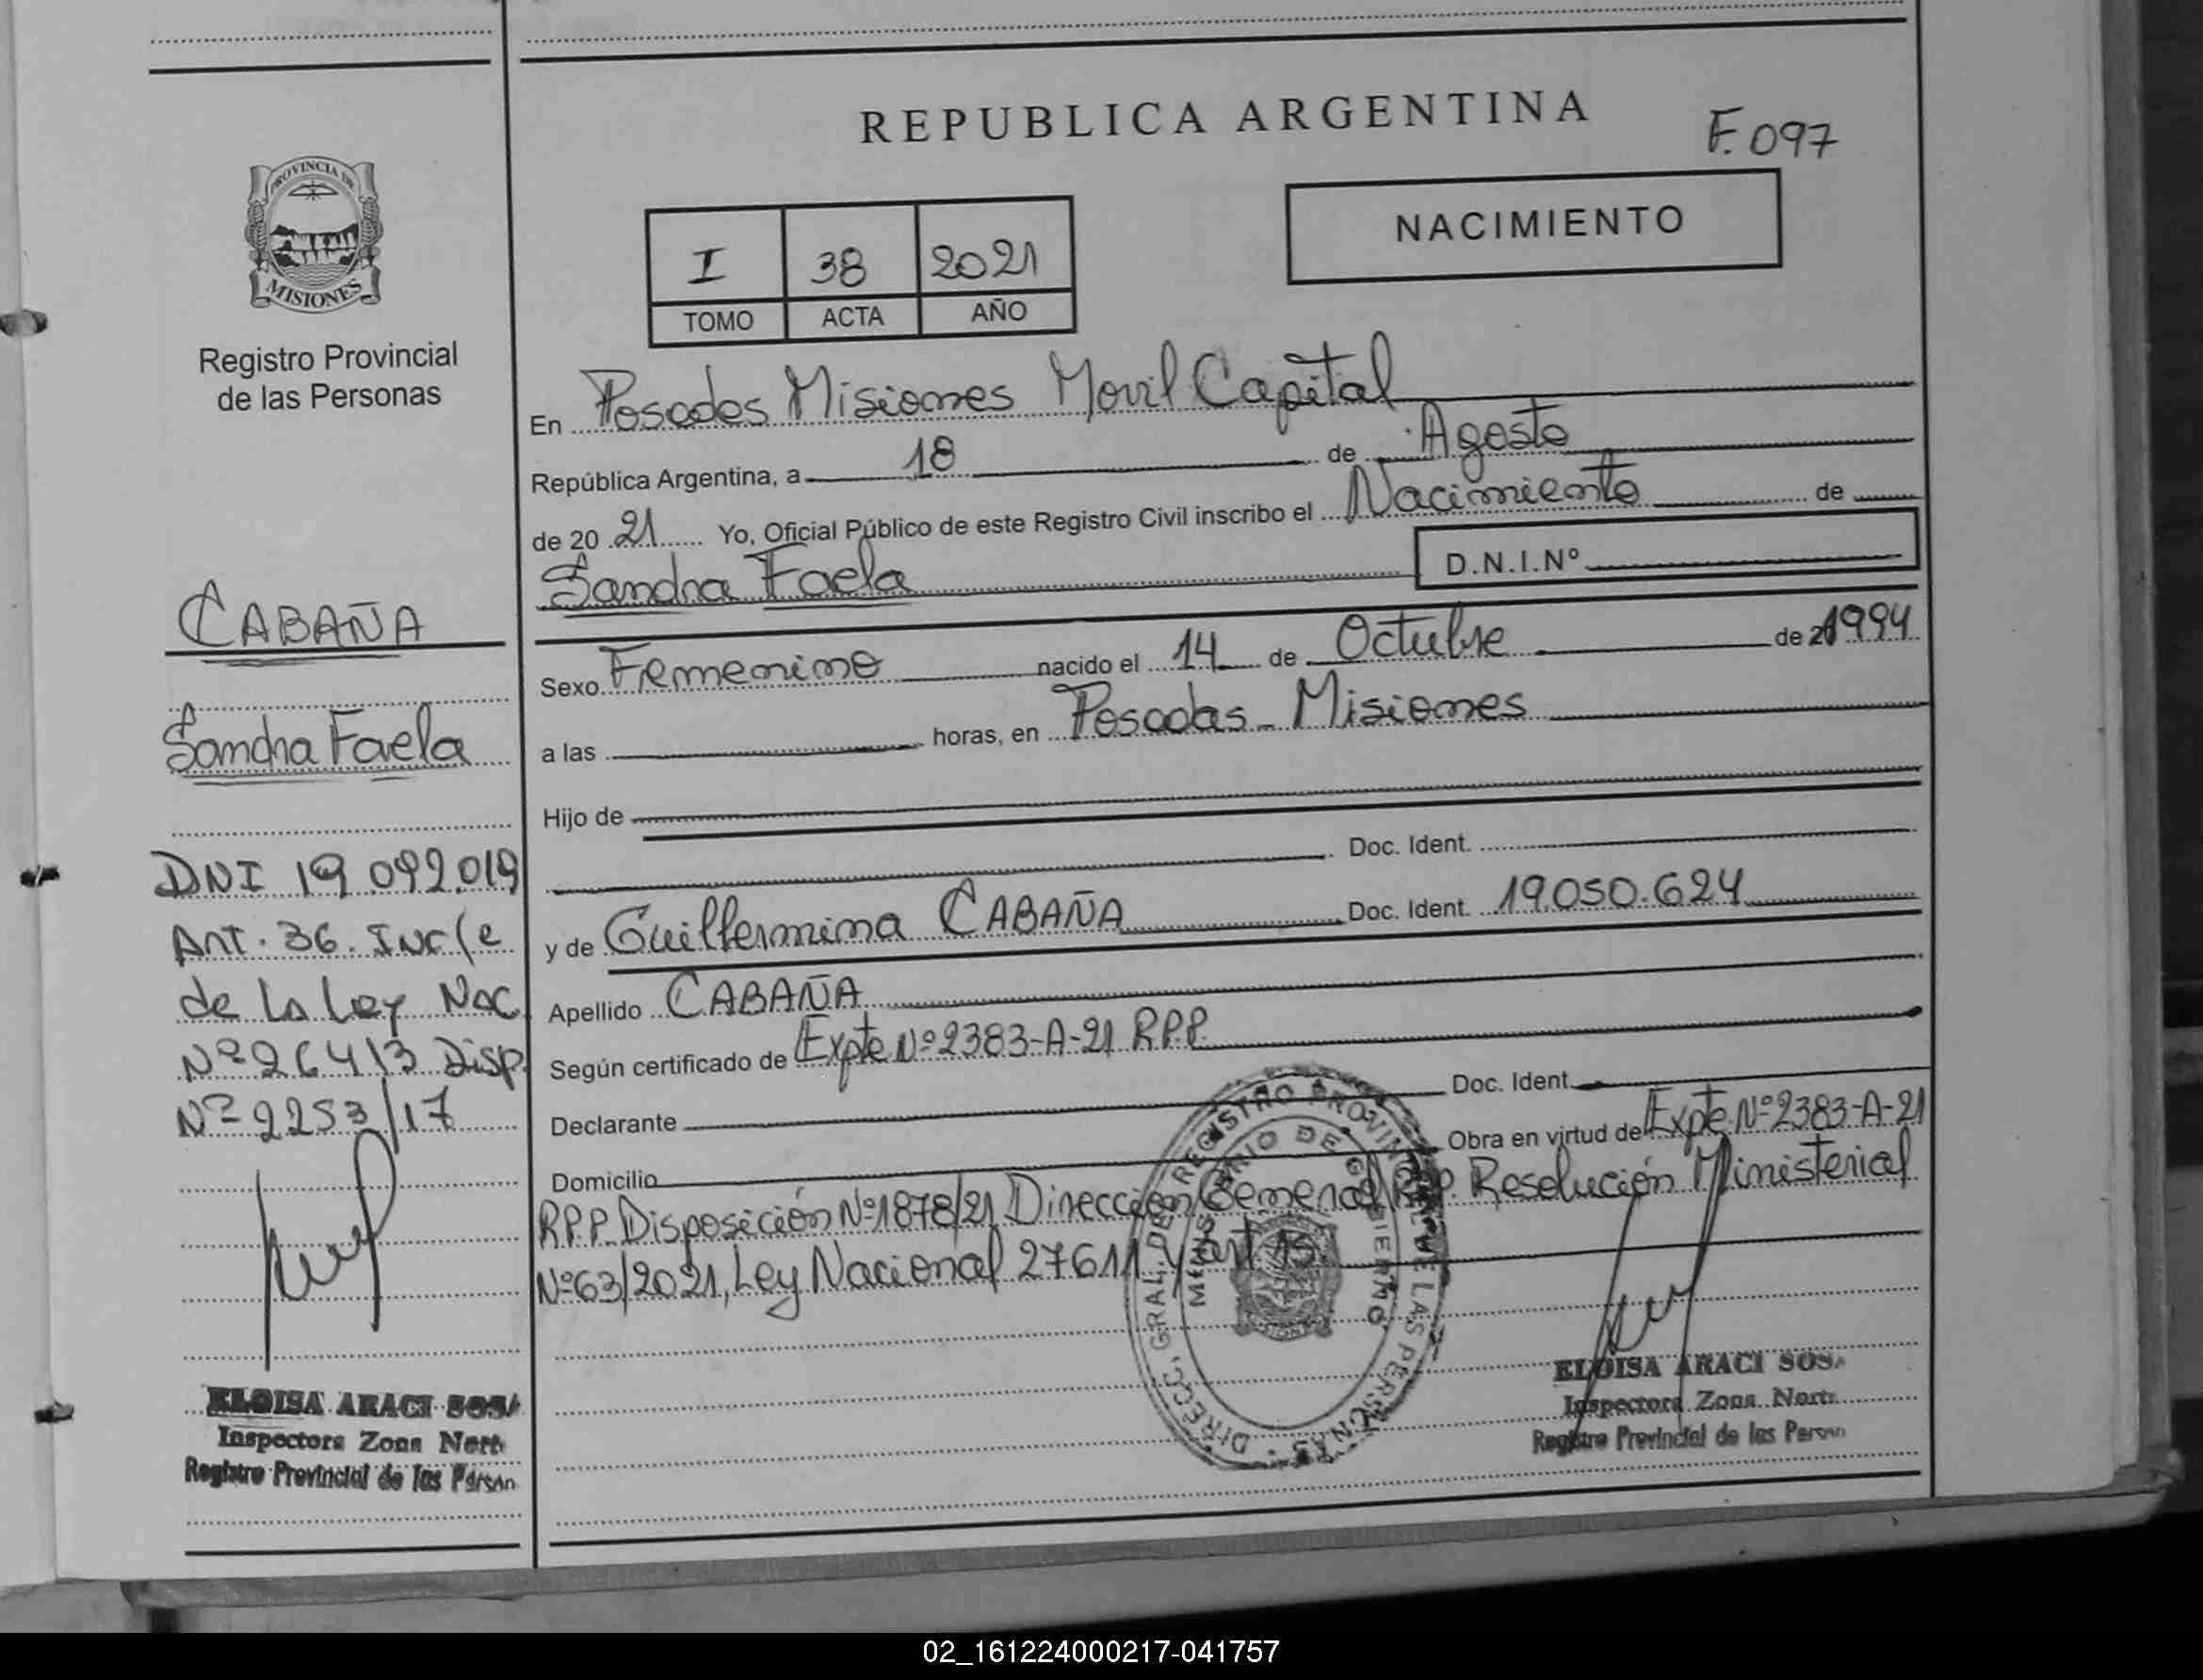 REPUBLICA ARGENTINA
F. 097
PROVINCIA DE
MISIONES
Registro Provincial
de las Personas
I 38 2021
TOMO ACTA AÑO
NACIMIENTO
En Posadas Misiones Movil Capital
República Argentina, a 18 de Agosto
de 20 21 Yo, Oficial Público de este Registro Civil inscribo el Nacimiento de
Sandra Faela
D.N.I.Nº
CABAÑA
Sandra Faela
DNI 19.092.019
Art. 36. Inc/e
de la Ley Nac
Nº 26413 Disp.
Nº 2253/17
ELOISA ARACI SOSA
Inspectora Zona Norte
Registro Provincial de las Person
Sexo Femenino nacido el 14 de Octubre de 1994
a las horas, en Posadas - Misiones
Hijo de
Doc. Ident.
y de Guillermina CABAÑA Doc. Ident. 19.050.624
Apellido CABAÑA
Según certificado de Expte Nº 2383-A-21 R.P.P.
Declarante Doc. Ident.
Domicilio Obra en virtud de Expte Nº 2383-A-21
R.P.P. Disposición Nº 1878/21 Dirección General R.P.P. Resolución Ministerial
Nº 63/2021, Ley Nacional 27611 y art 15.
DIRECC. GRAL. DE REGISTRO PROVINCIAL DE LAS PERSONAS
MINISTERIO DE GOBIERNO
ELOISA ARACI SOSA
Inspectora Zona Norte
Registro Provincial de las Person
02_161224000217-041757